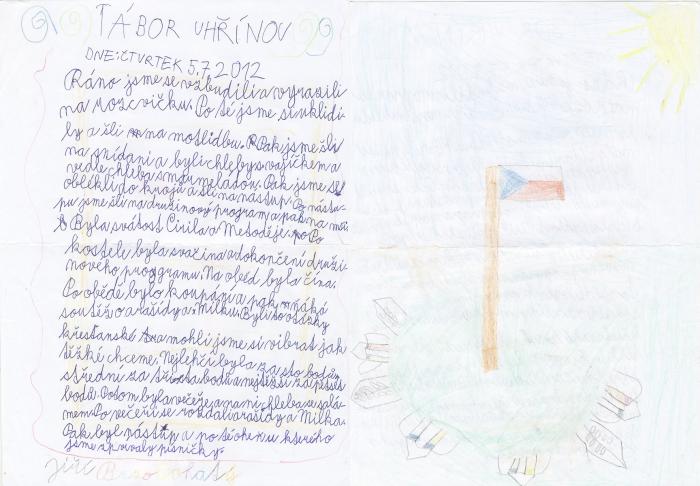 TÁBOR UHŘÍNOV
DNE: ČTVRTEK 5.7.2012
Ráno jsme se vzbudili a vyrazili
na rozcvičku. Po té jsme si uklidi-
ly a šli na motlidbu. Pak jsme šli
na snídani a byli chleby s vajíčkem a
vedle chleba s marmeládou. Pak jsme se
oblékli do kroje a šli na nástup. Po nástu-
pu jsme šli na družinový program a pak na mš
Byla svátost Cirila a Metoděje. Po
kostele byla svačina a dokončení druži-
nového programu. Na oběd byla čína.
Po obědě bylo koupání a pak nňáká
soutěž o arašídy a Milku. Byli to otázky
křesťanské a mohli jsme si vibrat jak
těžké chceme. Nejlehčí byla za sto bodů,
střední za bodů a nejtěžší za
bodů. Potom byla večeře a na ní chleba se salá-
mem. Po večeři se rozdali arašídy a Milka.
Pak byl nástup a po té oheň u kterého
jsme zpívaly písničky.
Jiří